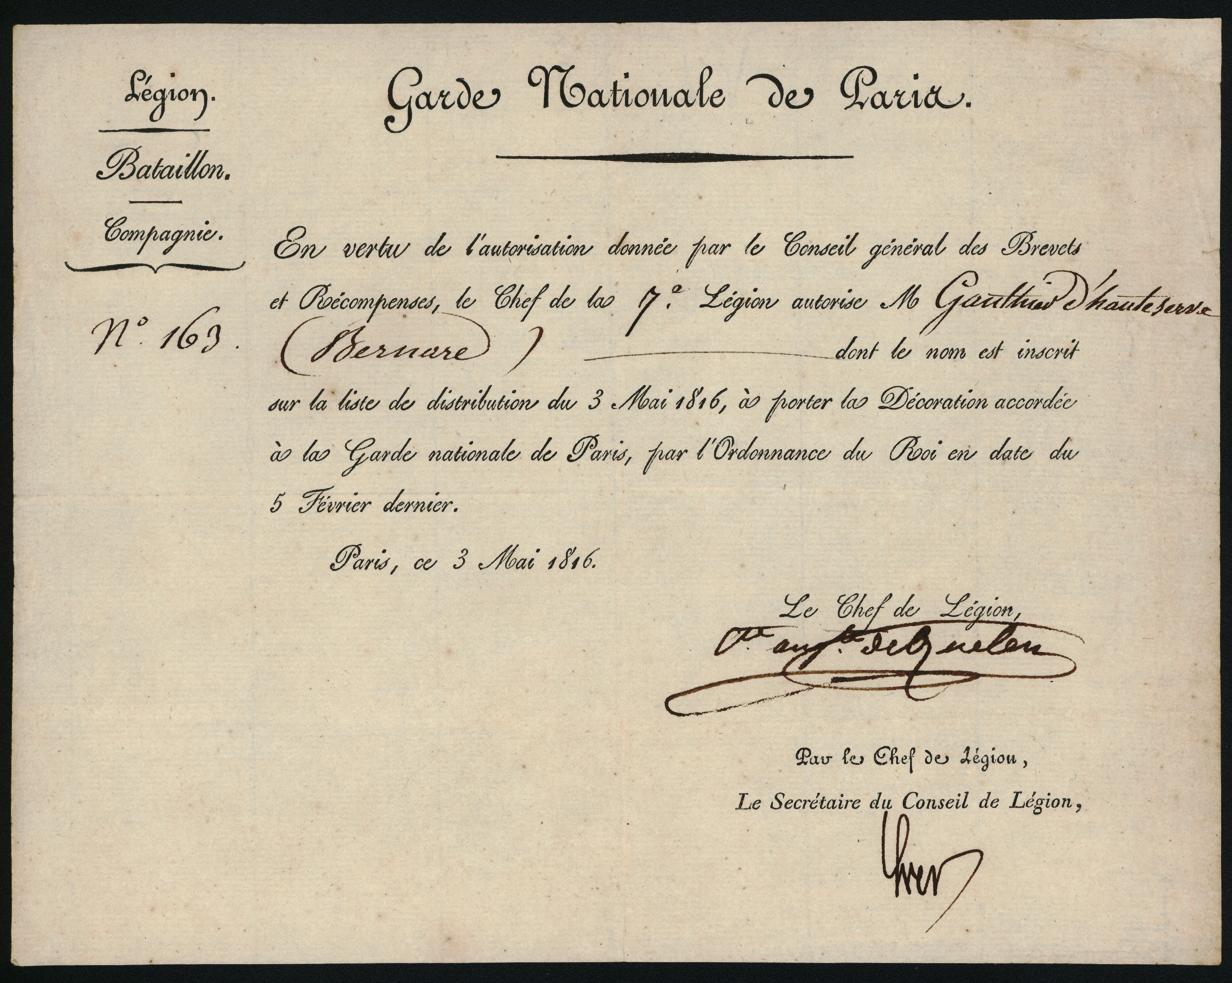 Légion.
Bataillon.
Compagnie.
N.º 163.
Garde Nationale de Paris.
En vertu de l'autorisation donnée par le Conseil général des Brevets
et Récompenses, le Chef de la 7.e Légion autorise M Gauthier d'hauteserve
(Bernard) dont le nom est inscrit
sur la liste de distribution du 3 Mai 1816, à porter la Décoration accordée
à la Garde nationale de Paris, par l'Ordonnance du Roi en date du
5 Février dernier.
Paris, ce 3 Mai 1816.
Le Chef de Légion,
Cte augte de Quelen
Par le Chef de Légion,
Le Secrétaire du Conseil de Légion,